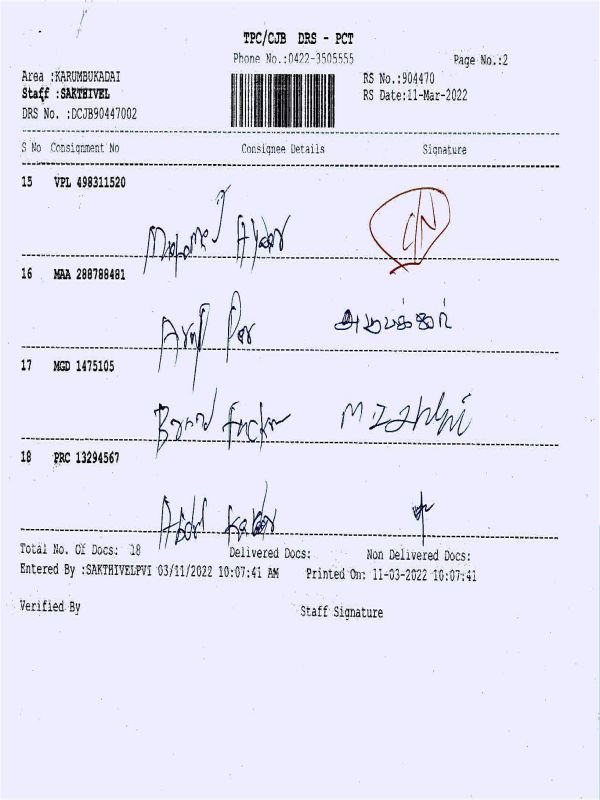 TPC/CJB DRS - PCT
Phone No.:0422-3505555
Page No.:2
Area :KARUMBUKADAI
RS No.:904470
Staff :SAKTHIVEL
RS Date:11-Mar-2022
DRS No. :DCJB90447002
S No Consignment No Consignee Details Signature
15 VPL 498311520
16 MAA 288788481
17 MGD 1475105
18 PRC 13294567
Total No. Of Docs: 18 Delivered Docs: Non Delivered Docs:
Entered By :SAKTHIVELPVI 03/11/2022 10:07:41 AM Printed On: 11-03-2022 10:07:41
Verified By Staff Signature